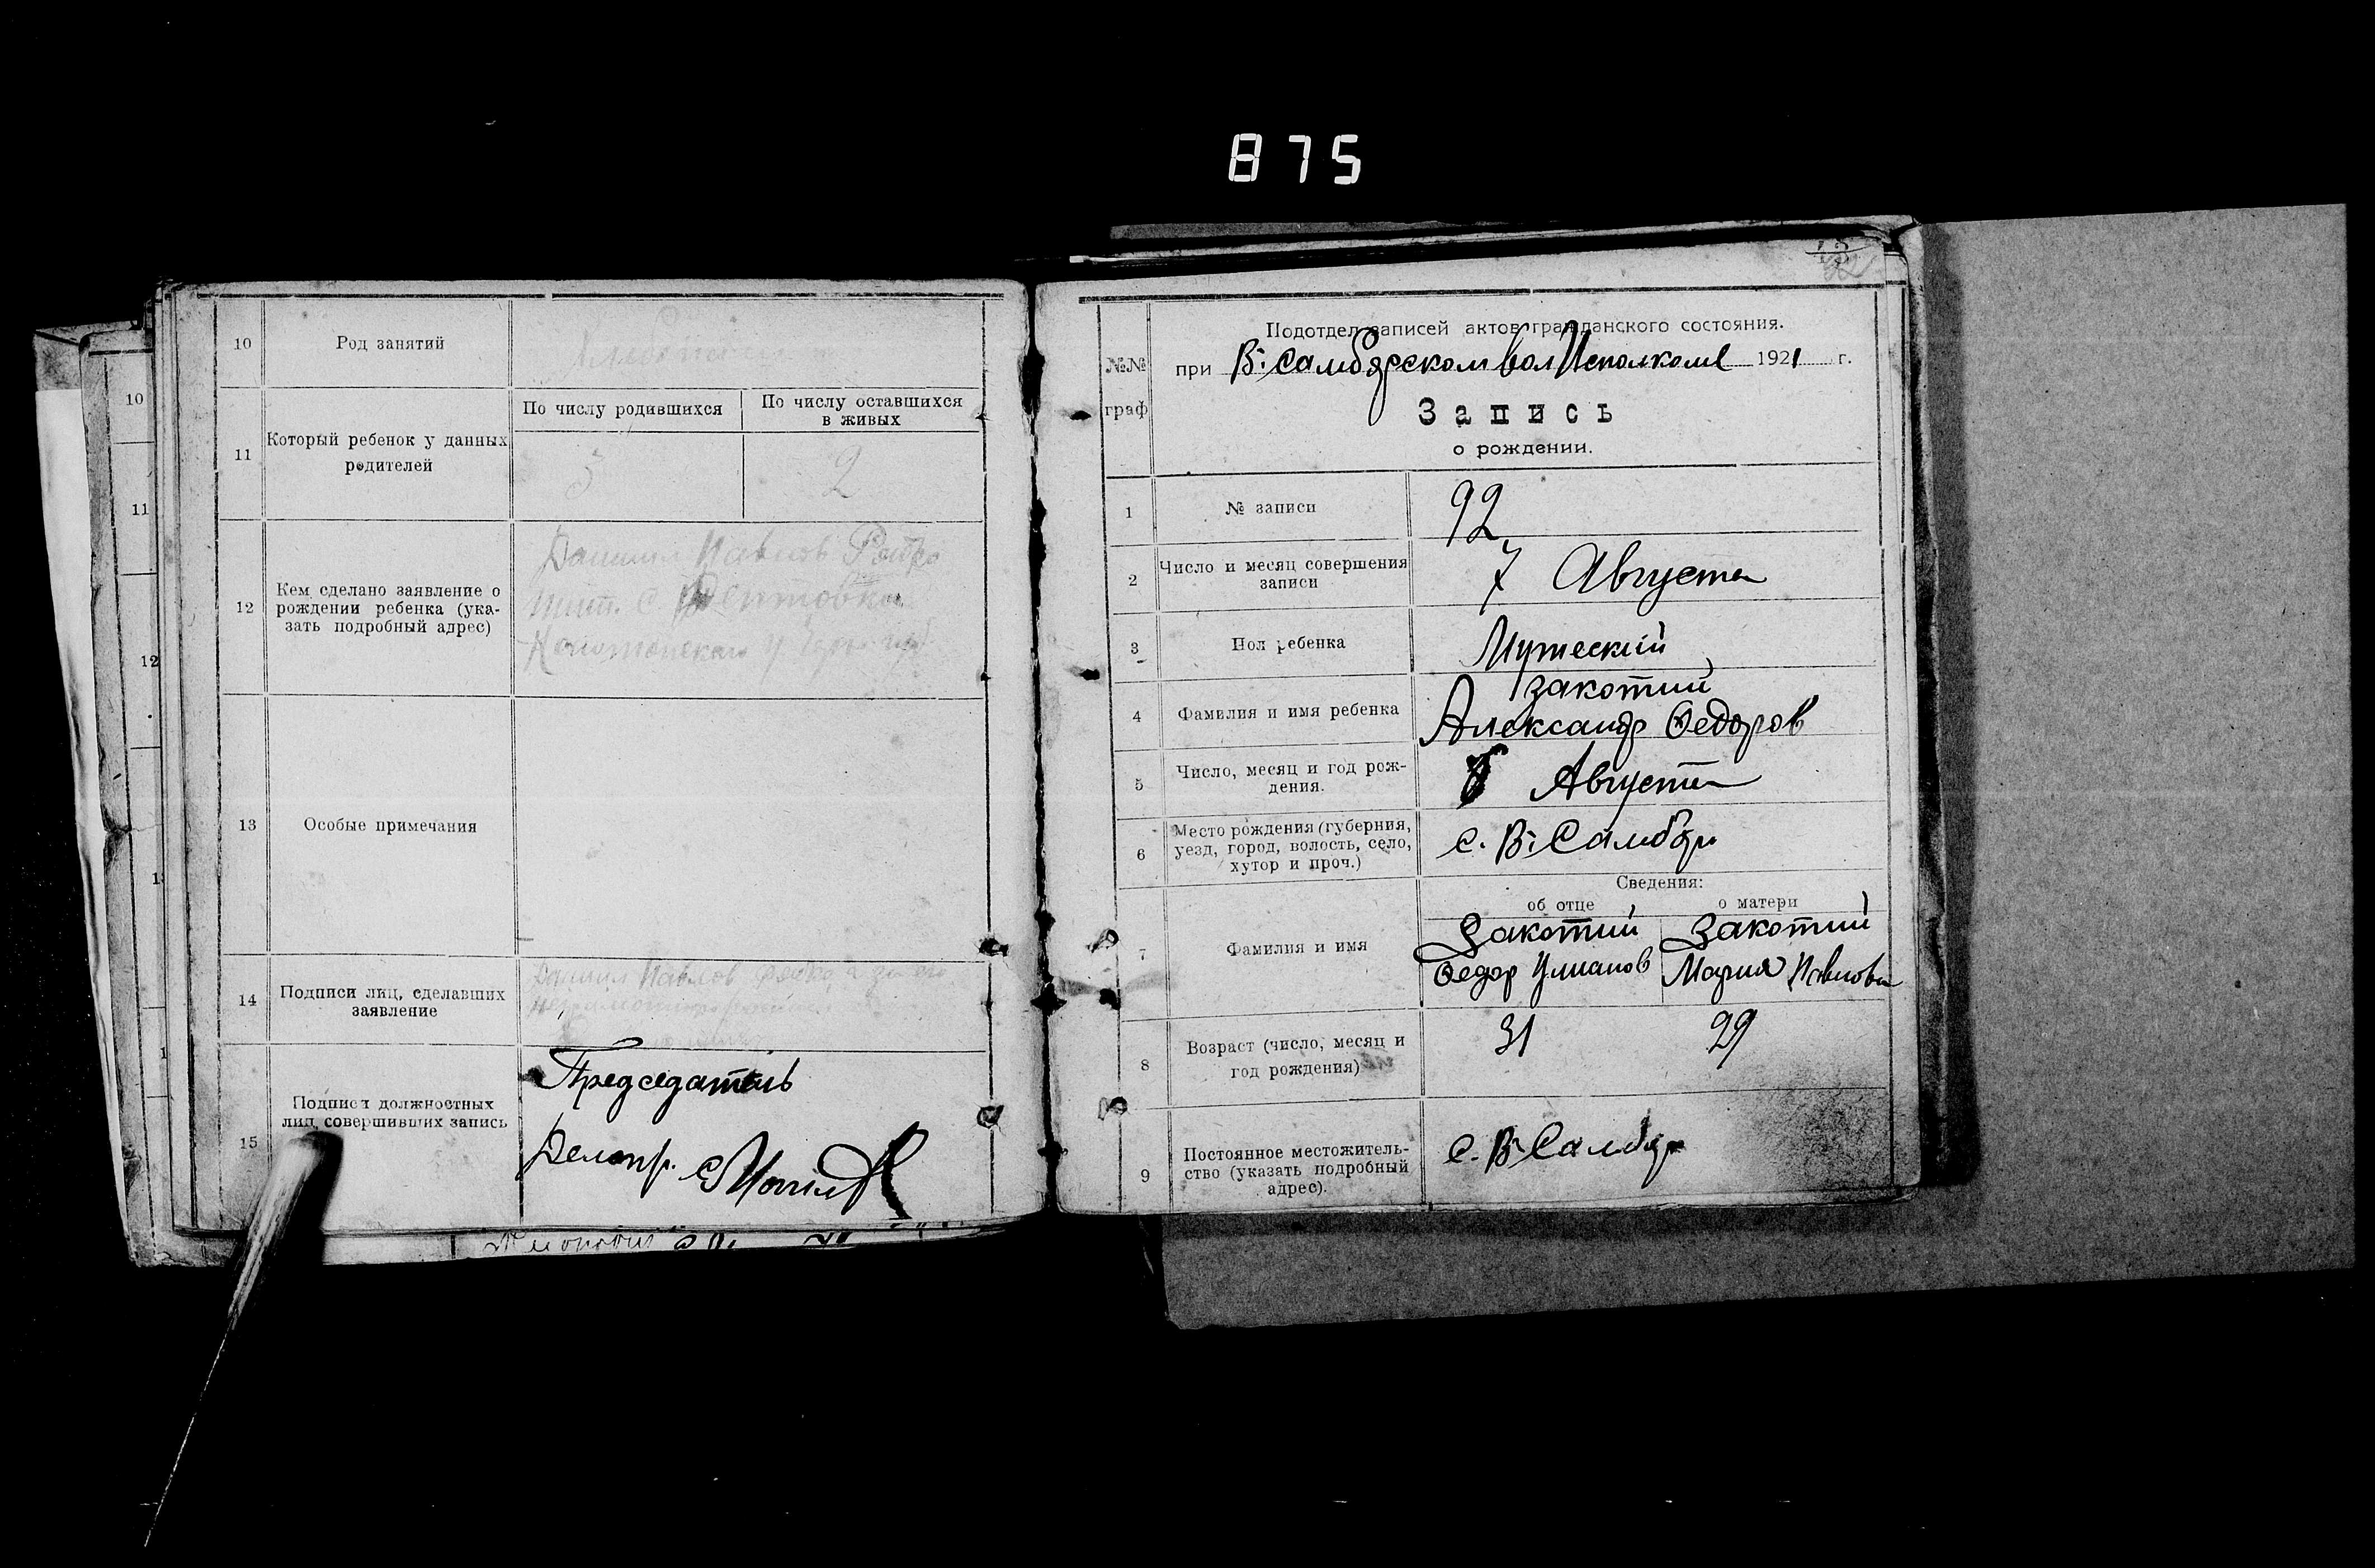 875
10
Род занятий
11
Который ребенок у данных
родителей
По числу родившихся
По числу оставшихся
в живых
3
2
12
Кем сделано заявление о
рождении ребенка (ука-
зать подробный адрес)
Даниил Павлов
с.
13
Особые примечания
14
Подписи лиц, сделавших
заявление
Даниил Павлов
15
Подписи должностных
лиц, совершивших запись
Председатель
Делопр.
10
11
12
№№
граф
Подотдел записей актов гражданского состояния.
при В: Самборском вол Исполкоме 1921 г.
Запись
о рождении.
1
№ записи
92
2
Число и месяц совершения
записи
7 Августа
3
Пол ребенка
Мужеский
4
Фамилия и имя ребенка
Закотий
Александр Федоров
5
Число, месяц и год рож-
дения.
Августа
6
Место рождения (губерния,
уезд, город, волость, село,
хутор и проч.)
с. В: Самбор
Сведения:
об отце
о матери
7
Фамилия и имя
Закотий
Федор
Закотий
Мария Павлова
8
Возраст (число, месяц и
год рождения)
31
29
9
Постоянное местожитель-
ство (указать подробный
адрес).
с. В: Самбор